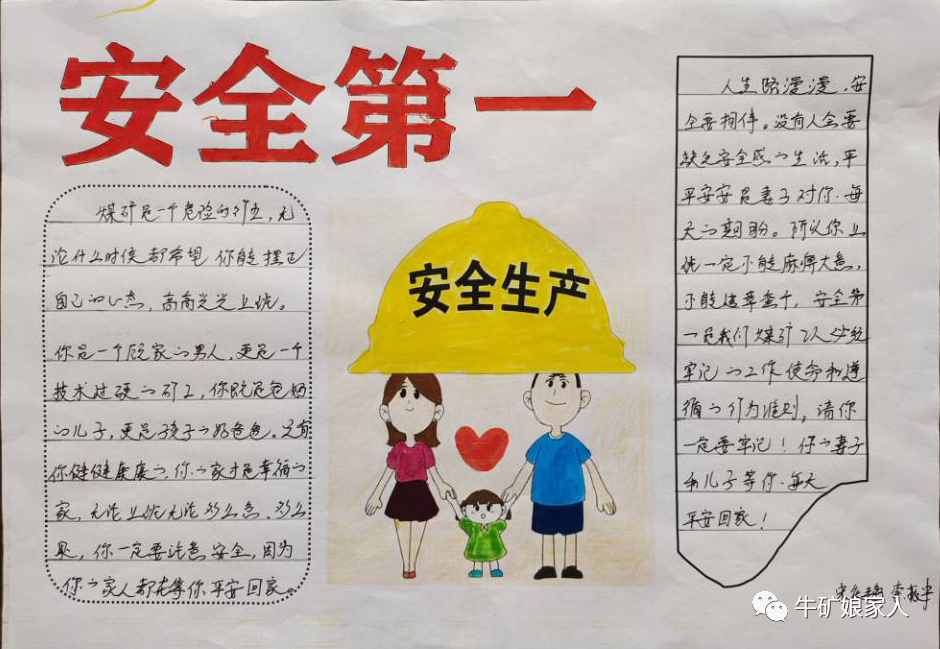 安全第一
煤矿是一个危险的行业,无
论什么时候都希望你能摆正
自己的心态,高高兴兴上班。
你是一个顾家的男人,更是一个
技术过硬的矿工,你既是爸妈
的儿子,更是孩子的好爸爸。只有
你健健康康的,你的家才是幸福的
家,无论上班无论多么急、多么
累,你一定要注意安全,因为
你的家人都在等你平安回家。
安全生产
人生路漫漫,安
全要相伴。没有人会要
缺乏安全感的生活,平
平安安是妻子对你每
天的期盼。所以你上
班一定不能麻痹大意,
不能违章蛮干,安全第
一是我们煤矿工人必须
牢记的工作使命和遵
循的行为准则,请你
一定要牢记!你的妻子
和儿子等你每天
平安回家!
牛矿娘家人